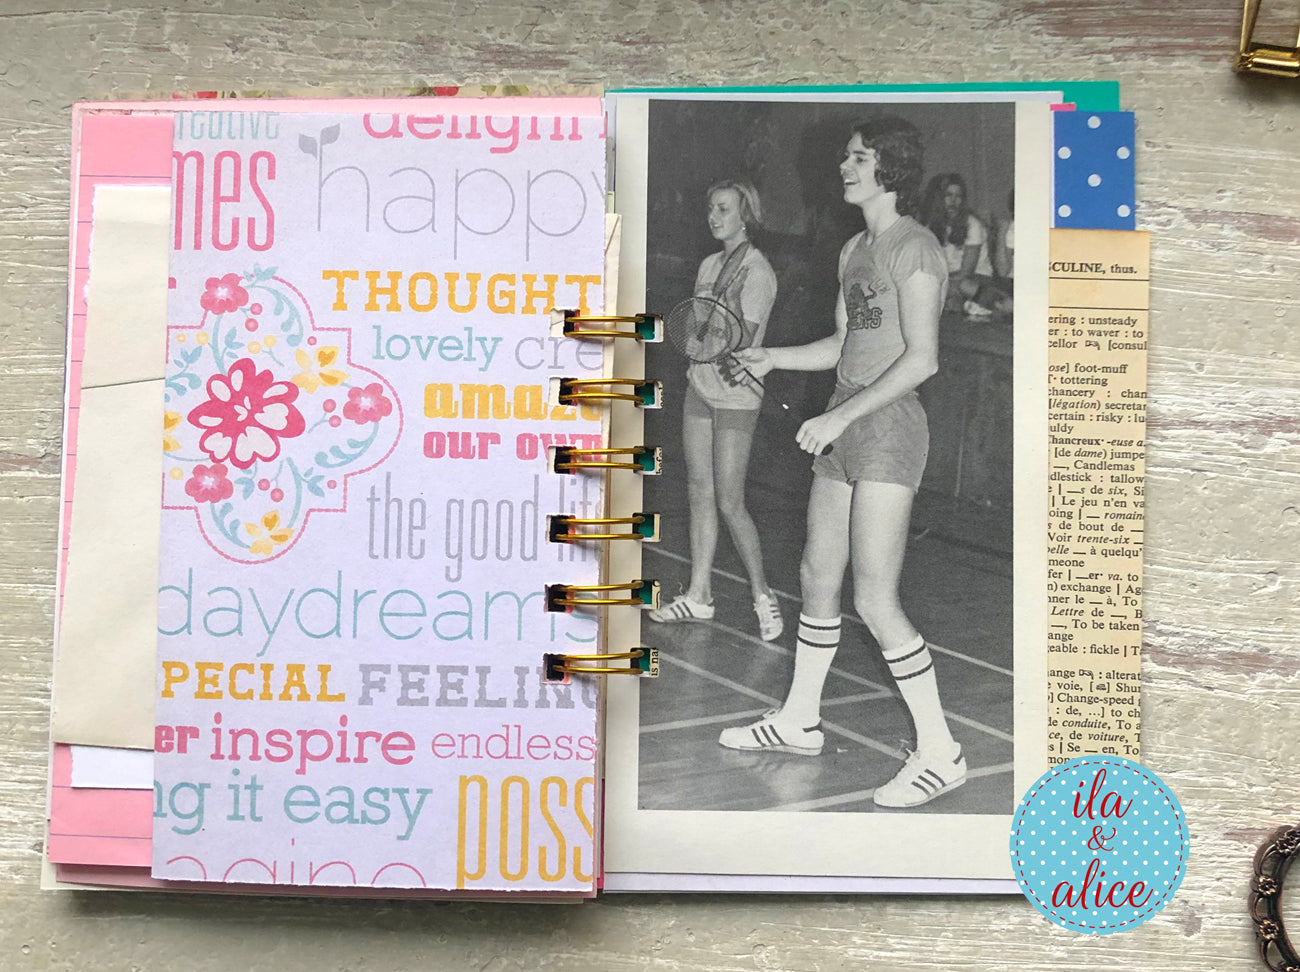 creative
delight
mes
happy
THOUGHT
lovely cre
amaz
our own
the good life
daydreams
PECIAL FEELING
er inspire endless
ng it easy
poss
agine
SCULINE, thus.
ering : unsteady
er : to waver : to
cellor [consul
ose] foot-muff
T· tottering
chancery : chan
(légation) secretar
certain : risky : lu
uldy
Chancreux· -euse a.
[de dame) jumpe
—, Candlemas
dlestick : tallow
e | —s de six, Si
| Le jeu n'en va
oing | — romain
s de bout de —
Voir trente-six —
belle — à quelqu'
meone
fer | —er· va. to
n) exchange | Ag
nner le — à, To
Lettre de —, B
—, To be taken
ange
geable : fickle | T
ange : alterat
e voie, Shun
] Change-speed
: de, ...] to ch
de conduite, To a
ce, de voiture, T
| Se — en, To
ila
&
alice